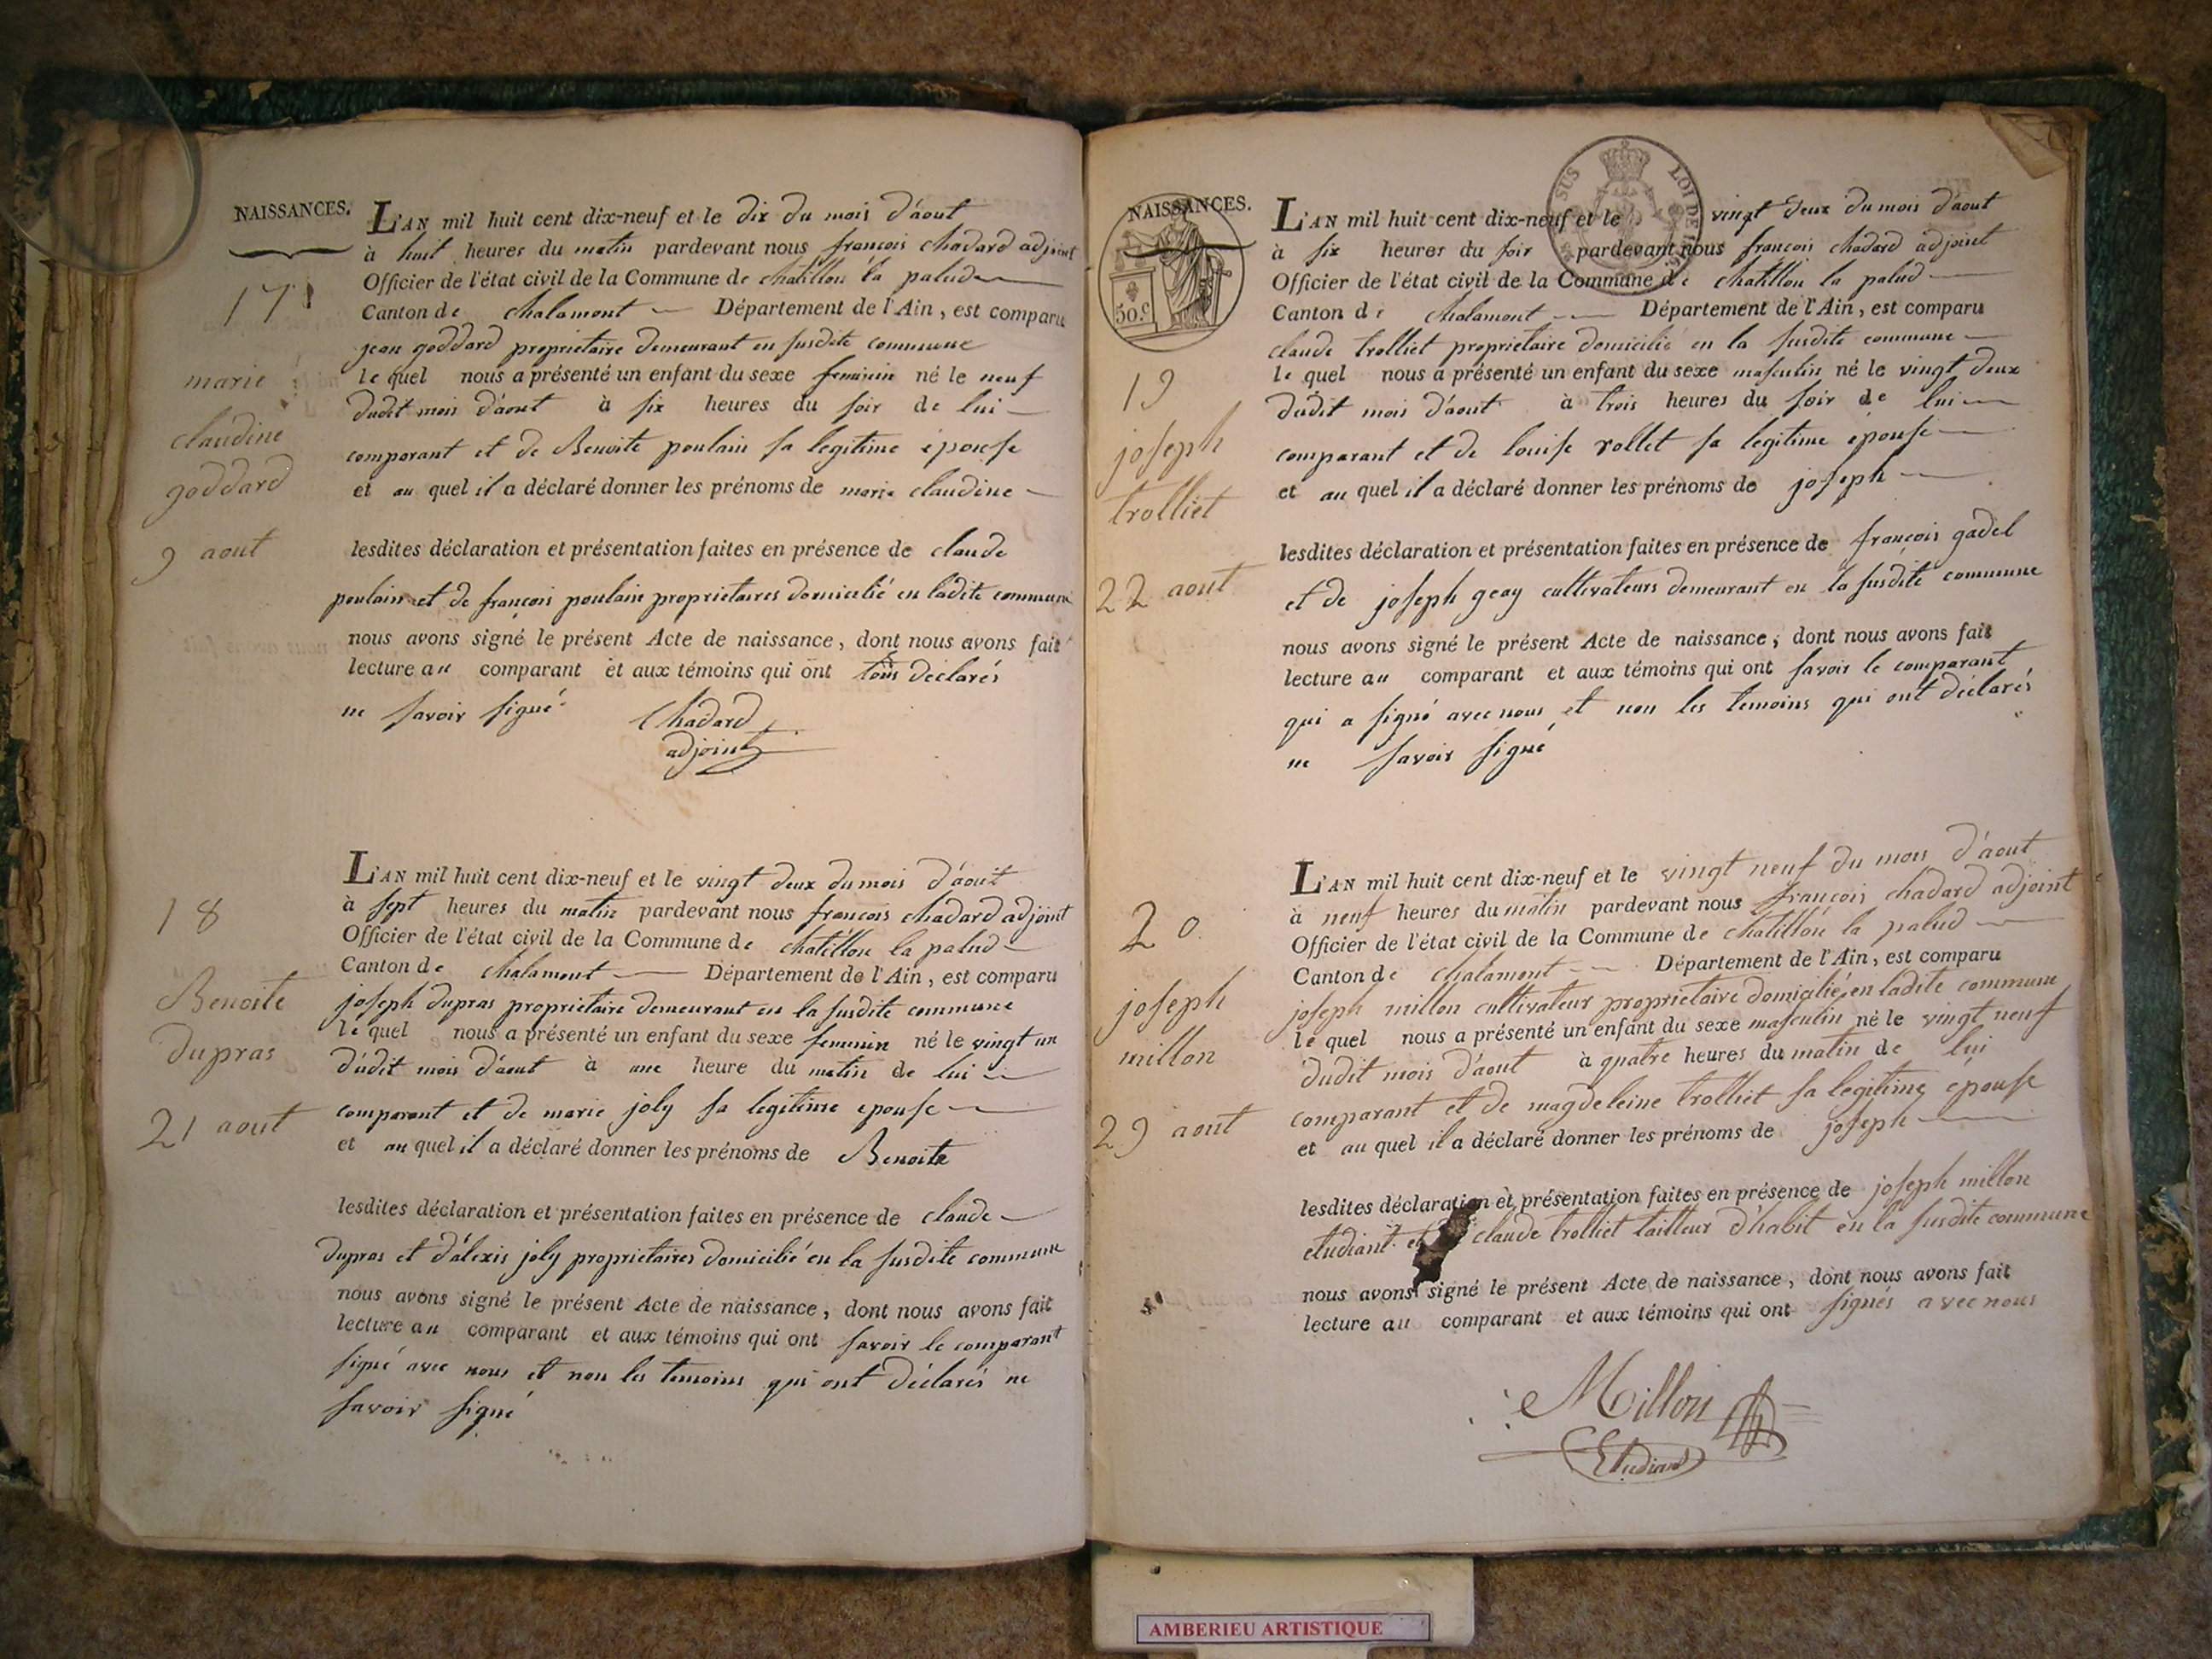 NAISSANCES.
17
marie
claudine
goddard
9 aout
L'AN mil huit cent dix-neuf et le dix du mois d'aout
à huit heures du matin pardevant nous françois chadard adjoint
Officier de l'état civil de la Commune de chatillon la palud
Canton de chalamont Département de l'Ain, est comparu
jean goddard proprietaire demeurant en susdite commune
le quel nous a présenté un enfant du sexe feminin né le neuf
dudit mois d'aout à six heures du soir de lui
comparant et de Benoite poulain sa legitime epouse
et au quel il a déclaré donner les prénoms de marie claudine
lesdites déclaration et présentation faites en présence de claude
poulain et de françois poulain proprietaires domicilié en ladite commune
nous avons signé le présent Acte de naissance, dont nous avons fait
lecture au comparant et aux témoins qui ont tous déclarés
ne savoir signé
Chadard
adjoint
18
Benoite
dupras
21 aout
L'AN mil huit cent dix-neuf et le vingt deux du mois d'aout
à sept heures du matin pardevant nous françois chadard adjoint
Officier de l'état civil de la Commune de chatillon la palud
Canton de chalamont Département de l'Ain, est comparu
joseph dupras proprietaire demeurant en la susdite commune
le quel nous a présenté un enfant du sexe feminin né le vingt un
dudit mois d'aout à une heure du matin de lui
comparant et de marie joly sa legitime epouse
et au quel il a déclaré donner les prénoms de Benoite
lesdites déclaration et présentation faites en présence de claude
dupras et d'alexis joly proprietaires domicilié en la susdite commune
nous avons signé le présent Acte de naissance, dont nous avons fait
lecture au comparant et aux témoins qui ont savoir le comparant
signé avec nous et non les temoins qui ont déclarés ne
savoir signé
NAISSANCES.
50 c
SUS LOI DE
19
joseph
trolliet
22 aout
L'AN mil huit cent dix-neuf et le vingt deux du mois d'aout
à six heures du soir pardevant nous françois chadard adjoint
Officier de l'état civil de la Commune de chatillon la palud
Canton de chalamont Département de l'Ain, est comparu
claude trolliet proprietaire domicilié en la susdite commune
le quel nous a présenté un enfant du sexe masculin né le vingt deux
dudit mois d'aout à trois heures du soir de lui
comparant et de louise rollet sa legitime epouse
et au quel il a déclaré donner les prénoms de joseph
lesdites déclaration et présentation faites en présence de françois gadel
et de joseph geay cultivateurs demeurant en la susdite commune
nous avons signé le présent Acte de naissance, dont nous avons fait
lecture au comparant et aux témoins qui ont savoir le comparant
qui a signé avec nous et non les temoins qui ont déclarés
ne savoir signé
20
joseph
millon
29 aout
L'AN mil huit cent dix-neuf et le vingt neuf du mois d'aout
à neuf heures du matin pardevant nous françois chadard adjoint
Officier de l'état civil de la Commune de chatillon la palud
Canton de chalamont Département de l'Ain, est comparu
joseph millon cultivateur proprietaire domicilié en ladite commune
le quel nous a présenté un enfant du sexe masculin né le vingt neuf
dudit mois d'aout à quatre heures du matin de lui
comparant et de magdeleine trolliet sa legitime épouse
et au quel il a déclaré donner les prénoms de joseph
lesdites déclaration et présentation faites en présence de joseph millon
etudiant et claude trolliet tailleur d'habit en la susdite commune
nous avons signé le présent Acte de naissance, dont nous avons fait
lecture au comparant et aux témoins qui ont signés avec nous
Millon
Etudiant
AMBERIEU ARTISTIQUE